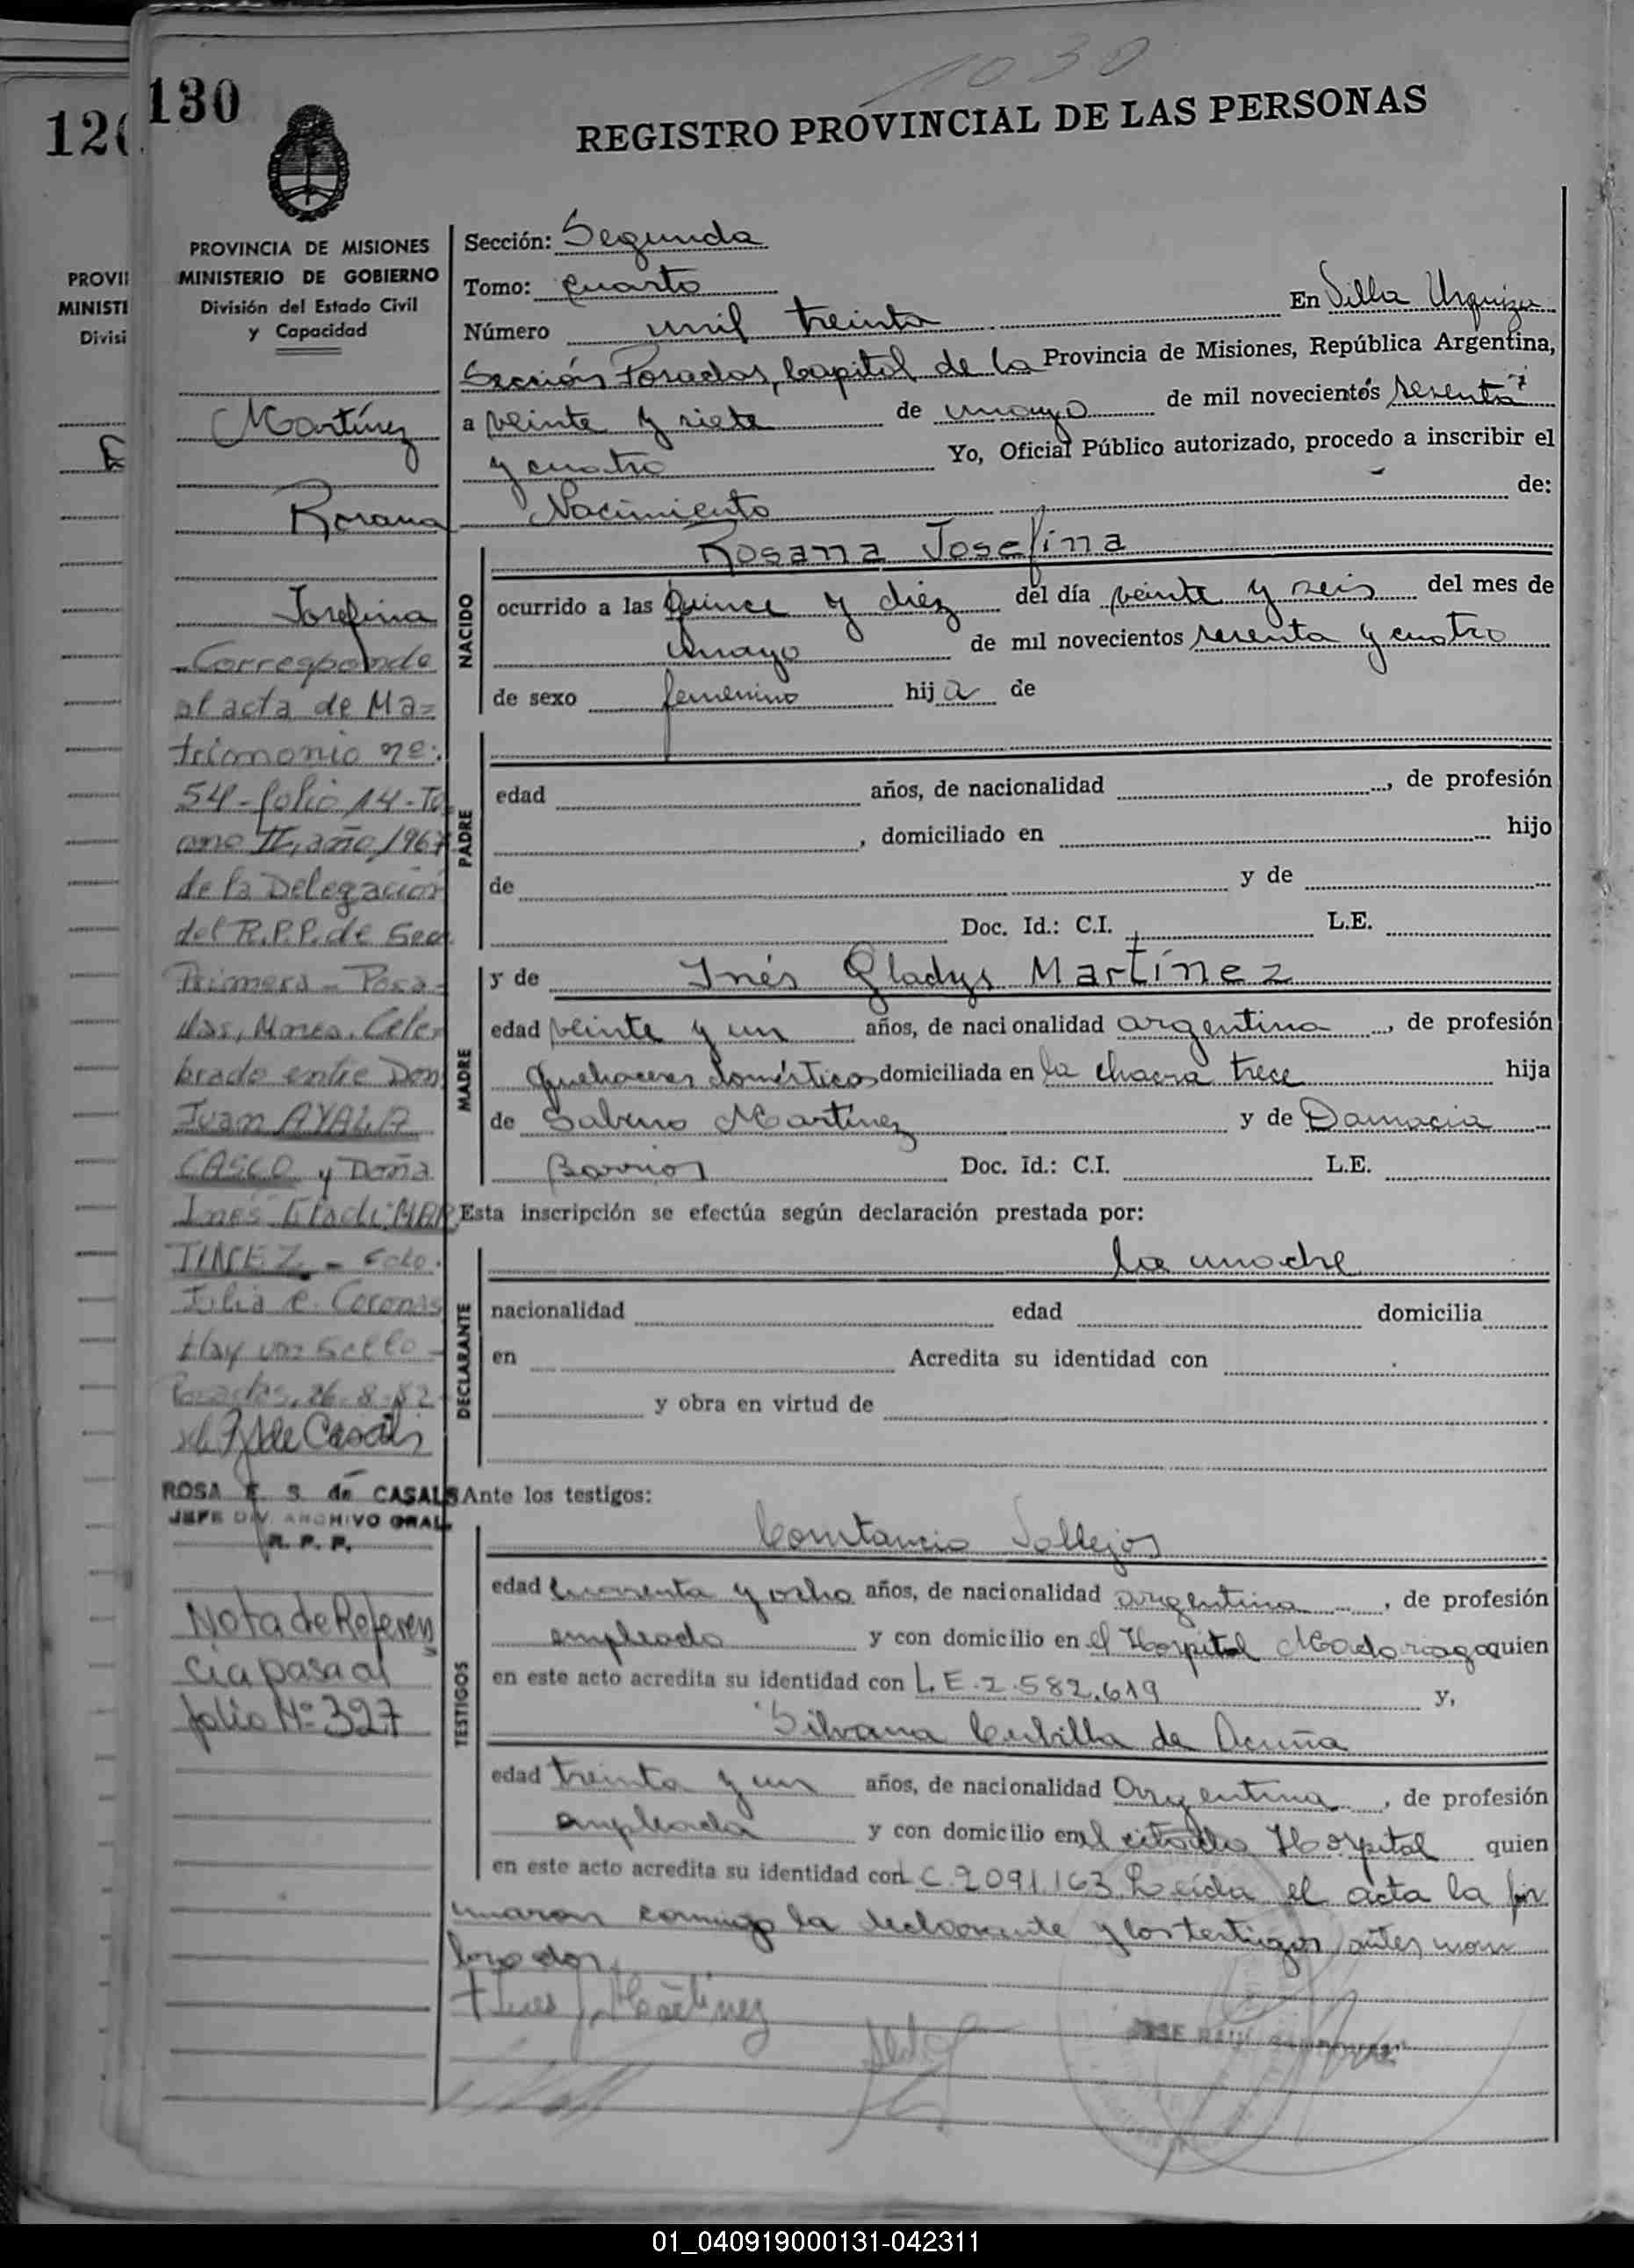 1030
130
REGISTRO PROVINCIAL DE LAS PERSONAS
120
PROVINCIA DE MISIONES
MINISTERIO DE GOBIERNO
División del Estado Civil
y Capacidad
PROVI
MINISTI
Divisi
Martínez
Rosana
Josefina
Corresponde
al acta de Ma=
trimonio nº:
54-folio 14-To
omo II, año 1967
de la Delegación
del R.P.P. de Secc
Primera - Posa-
das, Mnes. Cele
brado entre Don
Juan AYALA
CASCO y Doña
Inés Gladi MAR
TINEZ - Fdo.
Coronas
Hay un Sello -
Posadas, 26-8-82
de Casals
ROSA E. S. de CASALS
JEFE DIV. ARCHIVO GRAL.
R. P. P.
Nota de Referen
cia pasa al
folio Nº 327
Sección: Segunda
Tomo: Cuarto
Número mil treinta En Villa Urquiza
Sección Posadas, Capital de la Provincia de Misiones, República Argentina,
a veinte y siete de mayo de mil novecientos sesenta
y cuatro Yo, Oficial Público autorizado, procedo a inscribir el
Nacimiento de:
NACIDO
Rosana Josefina
ocurrido a las Quince y diez del día veinte y seis del mes de
mayo de mil novecientos sesenta y cuatro
de sexo femenino hija de
PADRE
edad años, de nacionalidad , de profesión
, domiciliado en hijo
de y de
Doc. Id.: C.I. L.E.
MADRE
y de Inés Gladys Martínez
edad veinte y un años, de nacionalidad argentina , de profesión
Quehaceres domésticos domiciliada en la chacra trece hija
de Sabino Martínez y de Damacia
Barrios Doc. Id.: C.I. L.E.
Esta inscripción se efectúa según declaración prestada por:
DECLARANTE
la madre
nacionalidad edad domicilia
en Acredita su identidad con
y obra en virtud de
Ante los testigos:
TESTIGOS
Constancio Vallejos
edad cuarenta y ocho años, de nacionalidad argentina , de profesión
empleado y con domicilio en el Hospital Madariaga quien
en este acto acredita su identidad con L.E.2.582.619 y,
Silvana Cubilla de Acuña
edad treinta y un años, de nacionalidad Argentina , de profesión
empleada y con domicilio en el citado Hospital quien
en este acto acredita su identidad con C.2091.163 Leída el acta la fir
maron conmigo la declarante y los testigos antes nom
brados.
Martinez
JOSE RAUL
01_040919000131-042311